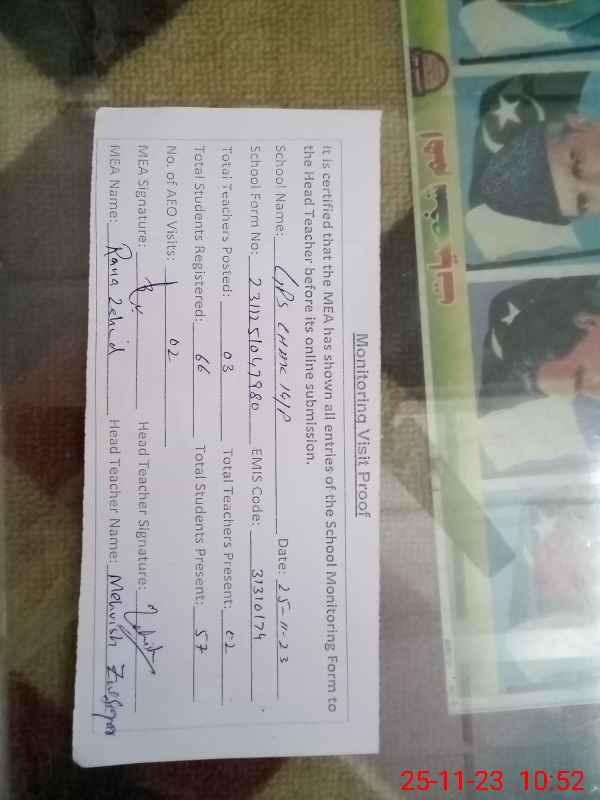 Monitoring Visit Proof
It is certified that the MEA has shown all entries of the School Monitoring Form to
the Head Teacher before its online submission.
School Name: GPS CHAK 14/P Date: 25-11-23
School Form No: EMIS Code: 31310174
Total Teachers Posted: 03 Total Teachers Present: 02
Total Students Registered: 66 Total Students Present: 57
No. of AEO Visits: 02
MEA Signature: Head Teacher Signature:
MEA Name: Rana Zahid Head Teacher Name: Mehvish
25-11-23 10:52